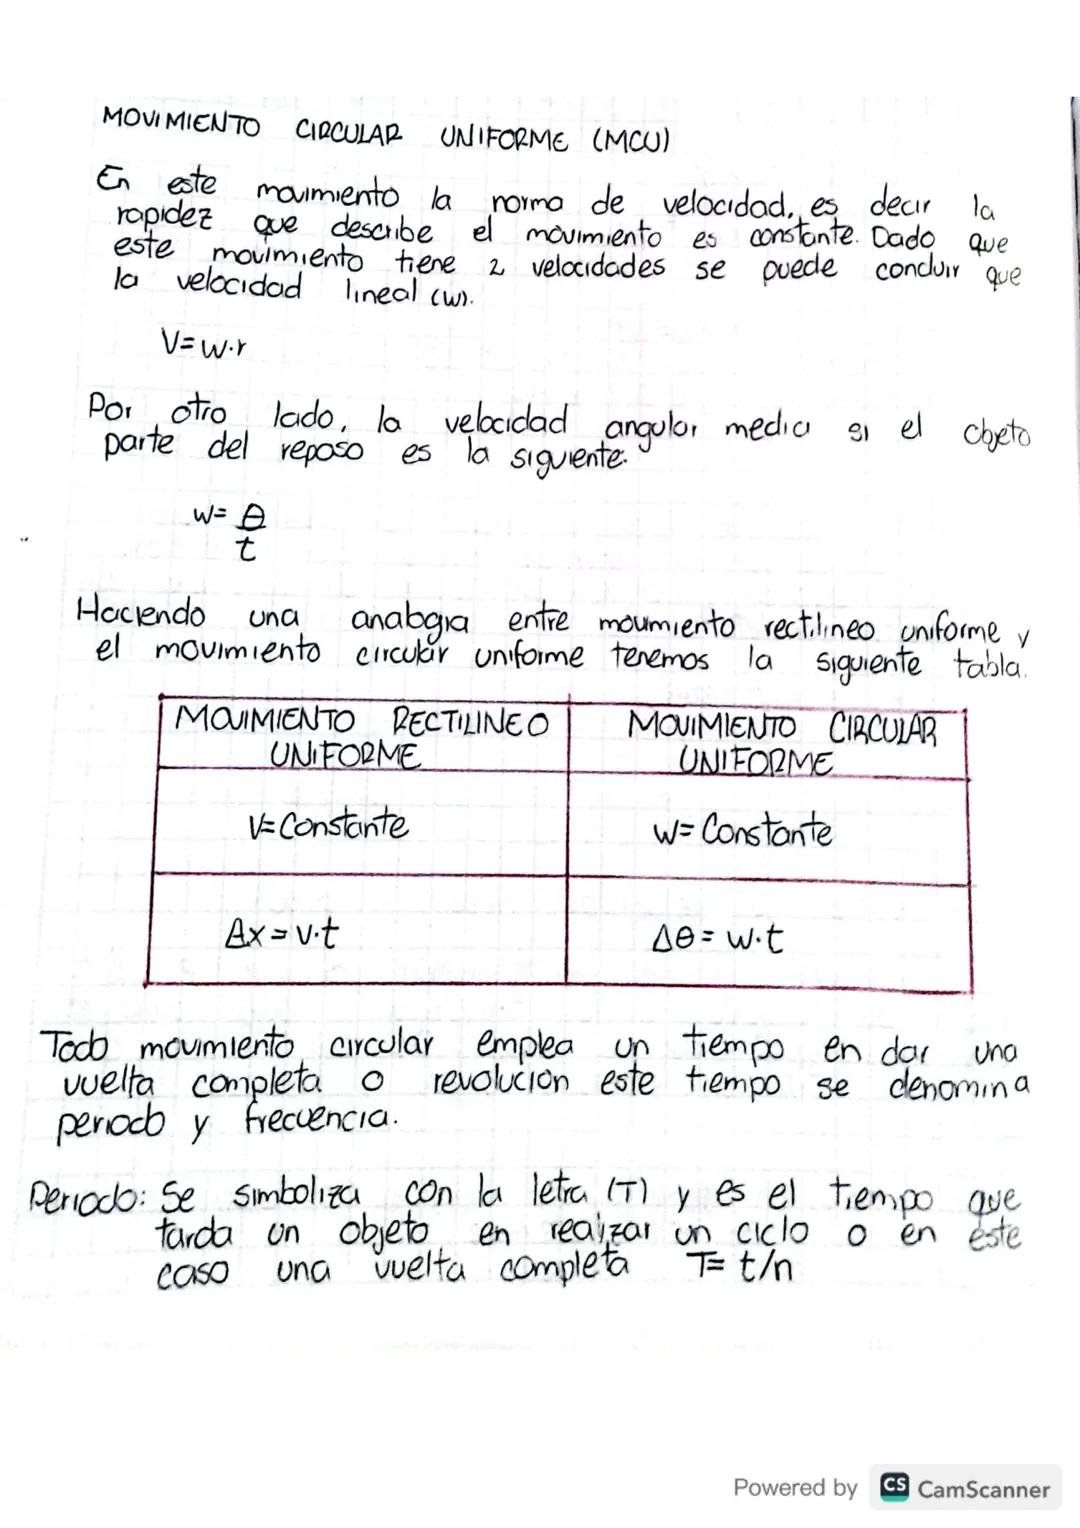 MOVIMIENTO CIRCULAR UNIFORME (MCU)
En este movimiento la norma de velocidad, es decir la
rapidez que describe el movimiento es constante. Dado que
este movimiento tiene 2 velocidades se puede concluir que
la velocidad lineal (w).
V=w·r
Por otro lado, la velocidad angular media si el objeto
parte del reposo es la siguiente:
w= θ
t
Haciendo una analogia entre movimiento rectilineo uniforme y
el movimiento circular uniforme tenemos la siguiente tabla.
MOVIMIENTO RECTILINEO MOVIMIENTO CIRCULAR
UNIFORME UNIFORME
V=Constante w=Constante
Δx=v·t Δθ=w·t
Todo movimiento circular emplea un tiempo en dar una
vuelta completa o revolución este tiempo se denomina
periodo y frecuencia.
Periodo: Se simboliza con la letra (T) y es el tiempo que
tarda un objeto en realizar un ciclo o en este
caso una vuelta completa T= t/n
Powered by CS CamScanner